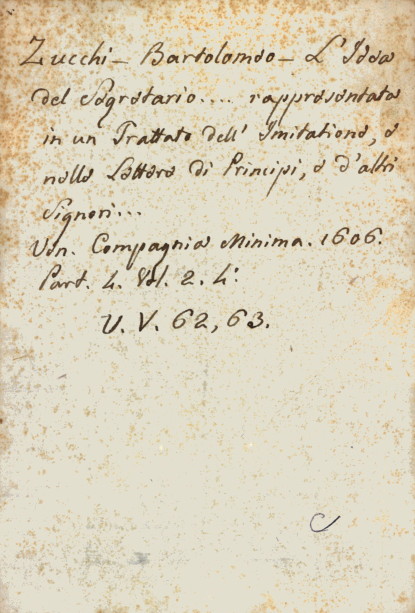 Zucchi - Bartolomeo - L'Idea
del Segretario.... rappresentata
in un Trattato dell' Imitatione, e
nelle Lettere di Principi, e d'altri
Signori...
Ven. Compagnia Minima. 1606.
Part. 4. Vol. 2. 4:
U. V. 62, 63.
C